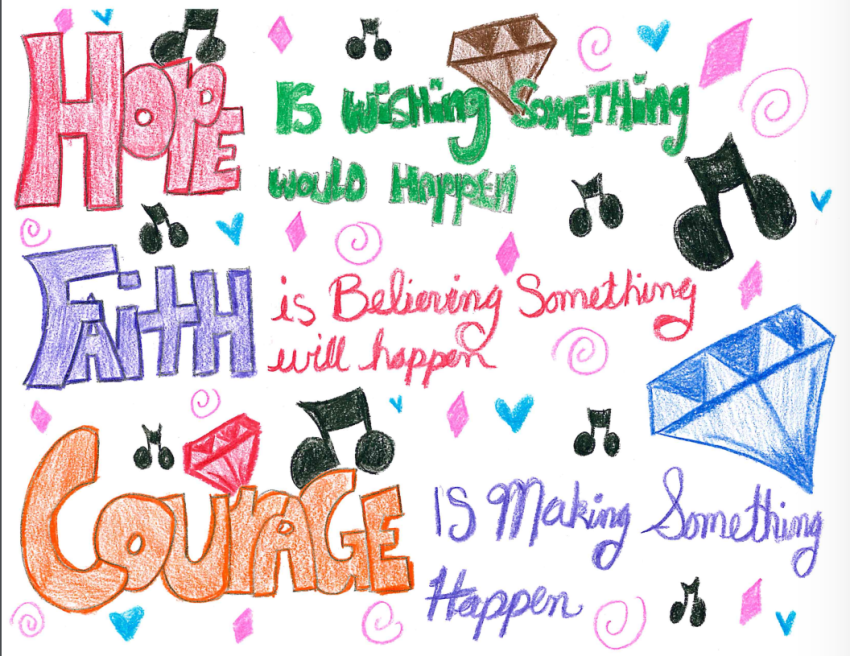 HOPE IS WISHING SOMETHING
WOULD HAPPEN
FAITH is Believing Something
will happen
COURAGE IS Making Something
Happen